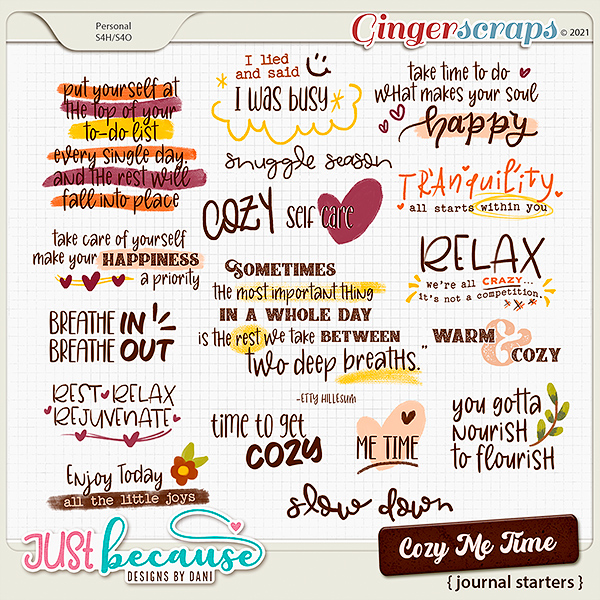 Personal
S4H/S4O
Gingerscraps © 2021
put yourself at
the top of your
to-do list
every single day,
and the rest will
fall into place
I lied
and said
I was busy
take time to do
what makes your soul
happy
snuggle season
cozy self care
TRANQUILITY
all starts within you
take care of yourself
make your HAPPINESS
a priority
SOMETIMES
the most important thing
IN A WHOLE DAY
is the rest we take BETWEEN
two deep breaths."
-ETTY HILLESUM
RELAX
we're all CRAZY...
it's not a competition.
BREATHE IN
BREATHE OUT
WARM
& COZY
REST • RELAX
REJUVENATE
time to get
cozy
ME TIME
you gotta
nourish
to flourish
Enjoy Today
all the little joys
slow down
JUST because
DESIGNS BY DANI
Cozy Me Time
{ journal starters }